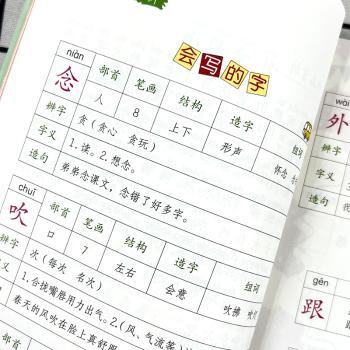 会写的字
niàn
念
部首 笔画 结构 造字 组词
人 8 上下 形声 怀念
辨字 贪（贪心 贪玩）
字义 1.读。2.想念。
造句 弟弟念课文，念错了好多字。
chuī
吹
部首 笔画 结构 造字 组词
口 7 左右 会意 吹拂
辨字 次（每次 名次）
字义 1.合拢嘴唇用力出气。2.（风、气流等）
造句 春天的风吹在脸上真舒服
wài
外
辨字
字义
造句
gēn
跟